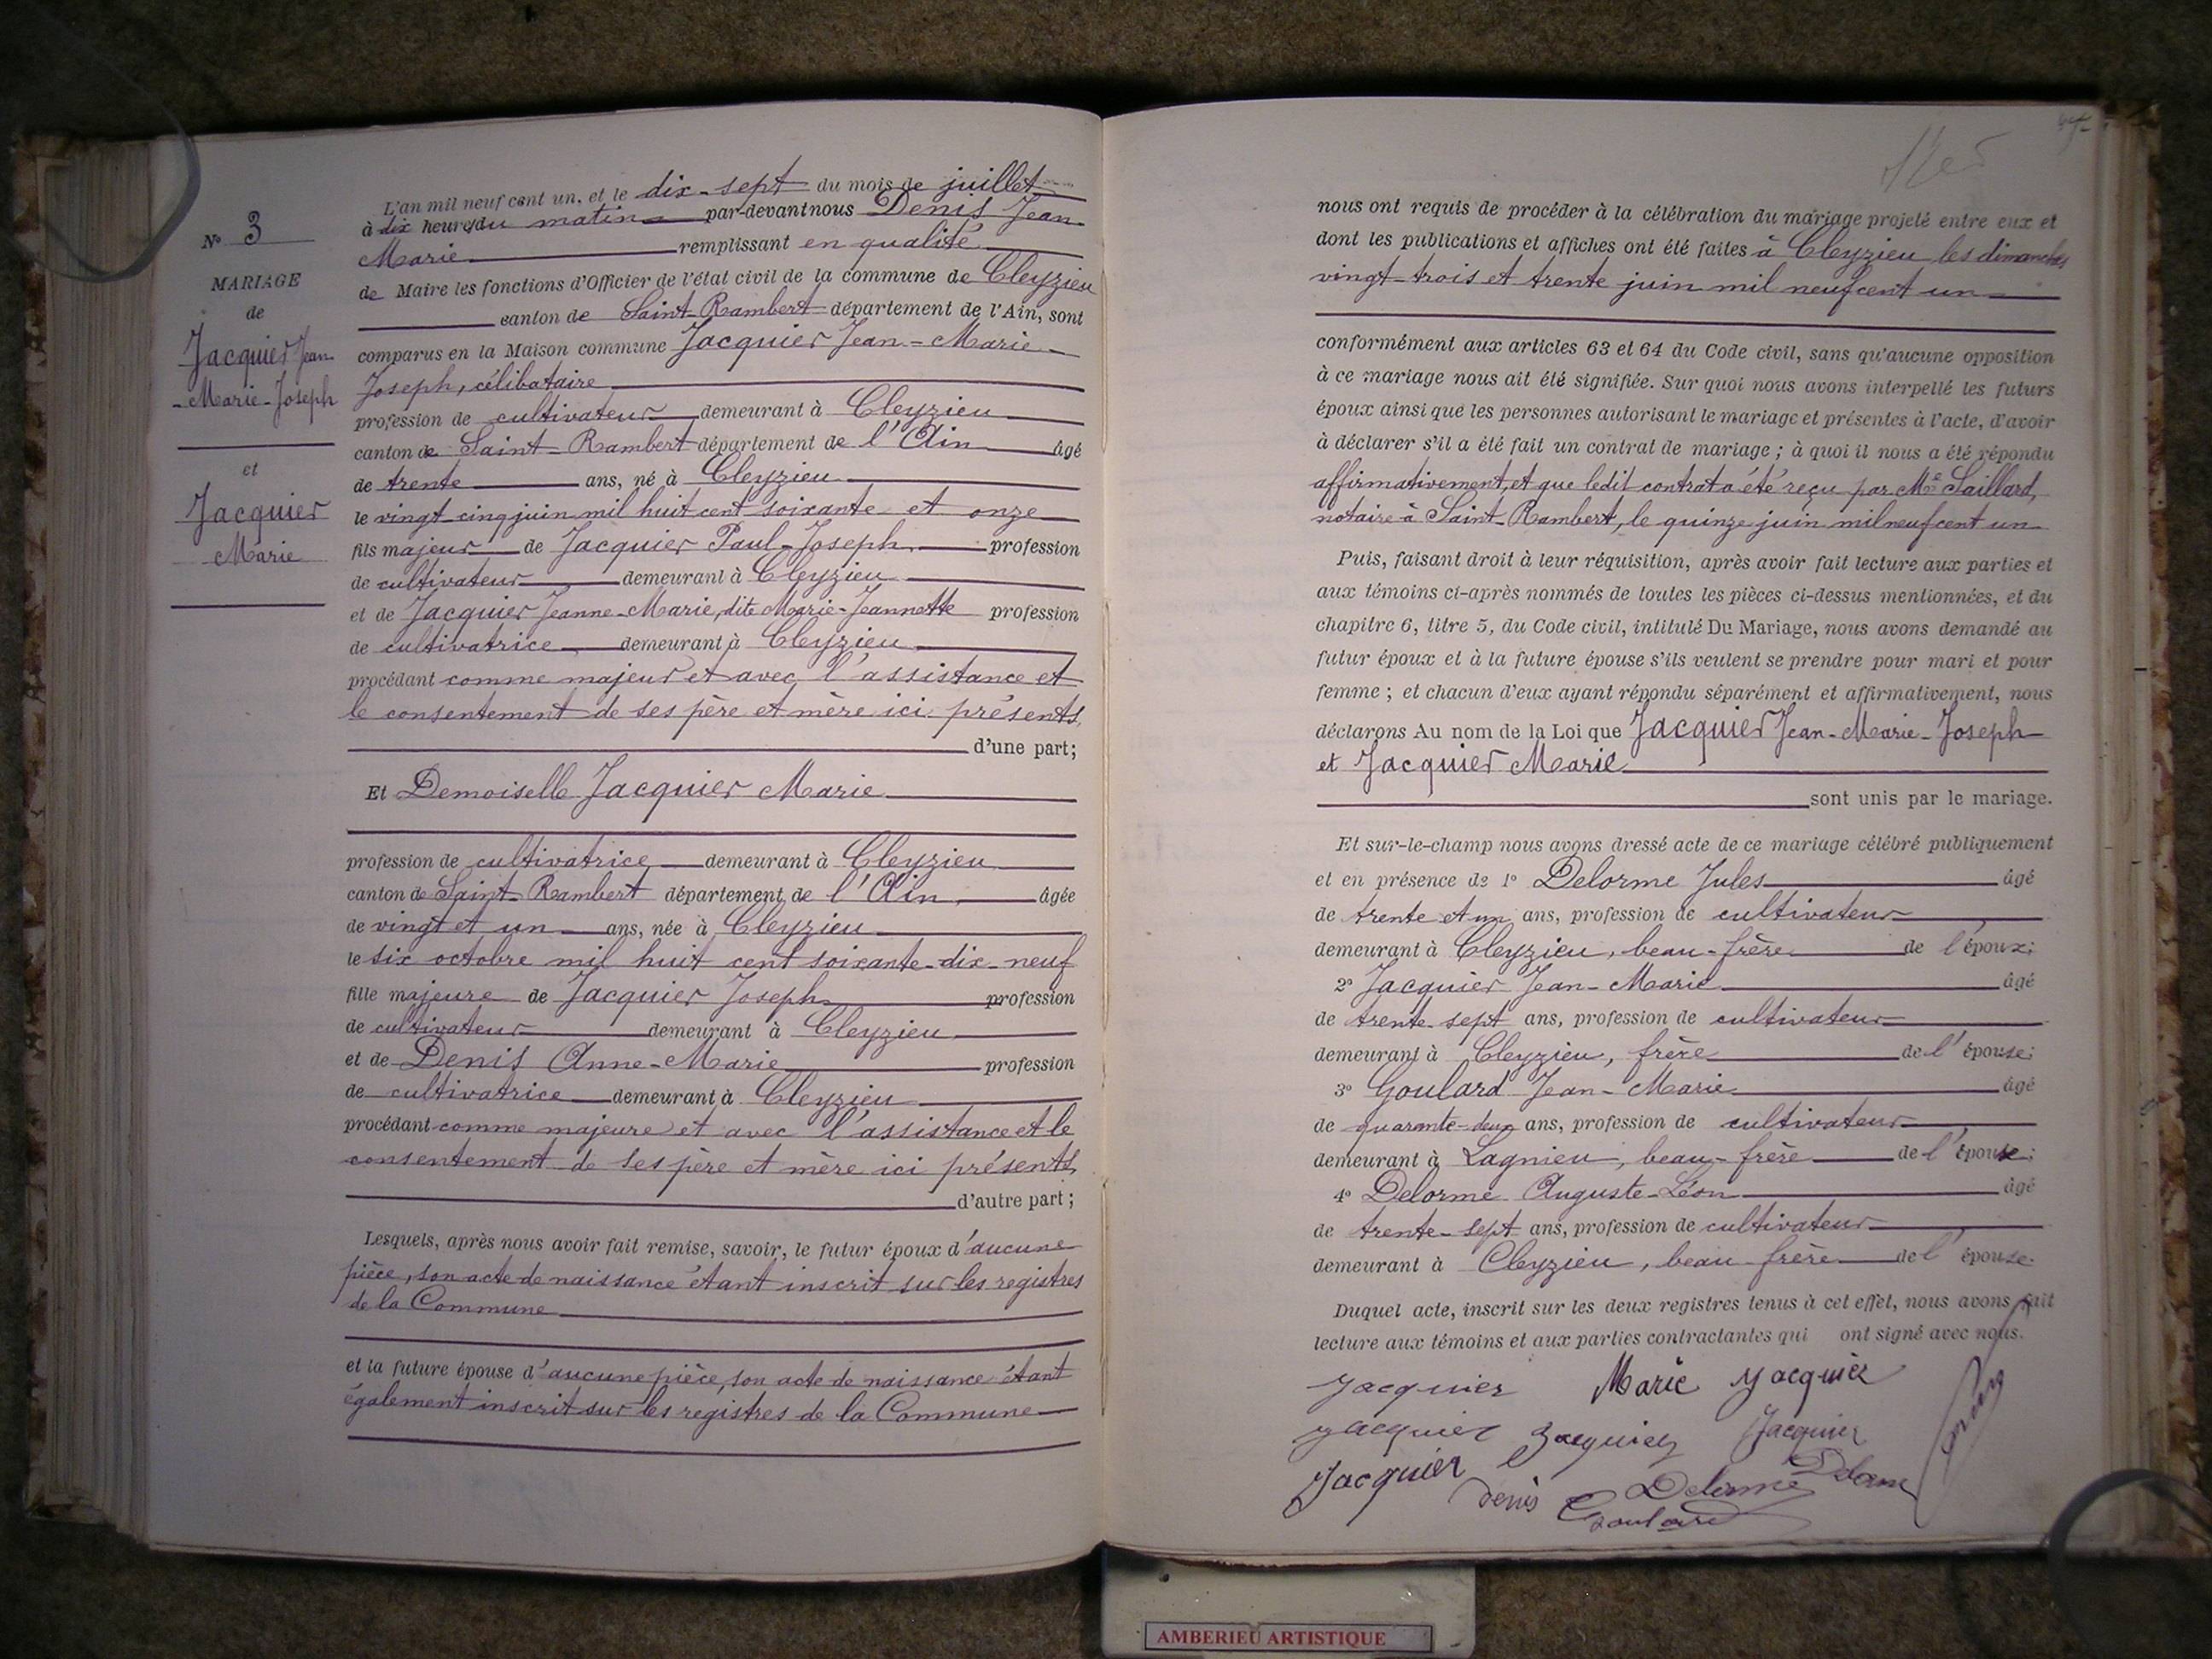 N° 3
MARIAGE
de
Jacquier Jean
-Marie-Joseph
et
Jacquier
Marie
L'an mil neuf cent un, et le dix-sept du mois de juillet
à dix heures du matin par-devant nous Denis Jean
Marie remplissant en qualité
de Maire les fonctions d'Officier de l'état civil de la commune de Cleyzieu
canton de Saint-Rambert département de l'Ain, sont
comparus en la Maison commune Jacquier Jean-Marie
Joseph, célibataire
profession de cultivateur demeurant à Cleyzieu
canton de Saint-Rambert département de l'Ain âgé
de trente ans, né à Cleyzieu
le vingt-cinq juin mil huit cent soixante et onze
fils majeur de Jacquier Paul-Joseph profession
de cultivateur demeurant à Cleyzieu
et de Jacquier Jeanne-Marie, dite Marie-Jeannette profession
de cultivatrice demeurant à Cleyzieu
procédant comme majeur et avec l'assistance et
le consentement de ses père et mère ici présents,
d'une part;
Et Demoiselle Jacquier Marie
profession de cultivatrice demeurant à Cleyzieu
canton de Saint-Rambert département de l'Ain âgée
de vingt et un ans, née à Cleyzieu
le six octobre mil huit cent soixante-dix-neuf
fille majeure de Jacquier Joseph profession
de cultivateur demeurant à Cleyzieu
et de Denis Anne-Marie profession
de cultivatrice demeurant à Cleyzieu
procédant comme majeure et avec l'assistance et le
consentement de ses père et mère ici présents,
d'autre part;
Lesquels, après nous avoir fait remise, savoir, le futur époux d'aucune
pièce, son acte de naissance étant inscrit sur les registres
de la Commune
et la future épouse d'aucune pièce, son acte de naissance étant
également inscrit sur les registres de la Commune
nous ont requis de procéder à la célébration du mariage projeté entre eux et
dont les publications et affiches ont été faites à Cleyzieu les dimanches
vingt-trois et trente juin mil neuf cent un
conformément aux articles 63 et 64 du Code civil, sans qu'aucune opposition
à ce mariage nous ait été signifiée. Sur quoi nous avons interpellé les futurs
époux ainsi que les personnes autorisant le mariage et présentes à l'acte, d'avoir
à déclarer s'il a été fait un contrat de mariage; à quoi il nous a été répondu
affirmativement, et que ledit contrat a été reçu par Me Saillard,
notaire à Saint-Rambert, le quinze juin mil neuf cent un
Puis, faisant droit à leur réquisition, après avoir fait lecture aux parties et
aux témoins ci-après nommés de toutes les pièces ci-dessus mentionnées, et du
chapitre 6, titre 5, du Code civil, intitulé Du Mariage, nous avons demandé au
futur époux et à la future épouse s'ils veulent se prendre pour mari et pour
femme; et chacun d'eux ayant répondu séparément et affirmativement, nous
déclarons Au nom de la Loi que Jacquier Jean-Marie-Joseph
et Jacquier Marie
sont unis par le mariage.
Et sur-le-champ nous avons dressé acte de ce mariage célébré publiquement
et en présence de 1° Delorme Jules âgé
de trente et un ans, profession de cultivateur
demeurant à Cleyzieu, beau-frère de l'époux;
2° Jacquier Jean-Marie âgé
de trente-sept ans, profession de cultivateur
demeurant à Cleyzieu, frère de l'épouse;
3° Goulard Jean-Marie âgé
de quarante-deux ans, profession de cultivateur
demeurant à Lagnieu, beau-frère de l'épouse;
4° Delorme Auguste-Léon âgé
de trente-sept ans, profession de cultivateur
demeurant à Cleyzieu, beau-frère de l'épouse.
Duquel acte, inscrit sur les deux registres tenus à cet effet, nous avons fait
lecture aux témoins et aux parties contractantes qui ont signé avec nous.
Jacquier Marie Jacquier
Jacquier Jacquier Jacquier
Jacquier Denis Delorme Delorme
Goulard
AMBERIEU ARTISTIQUE